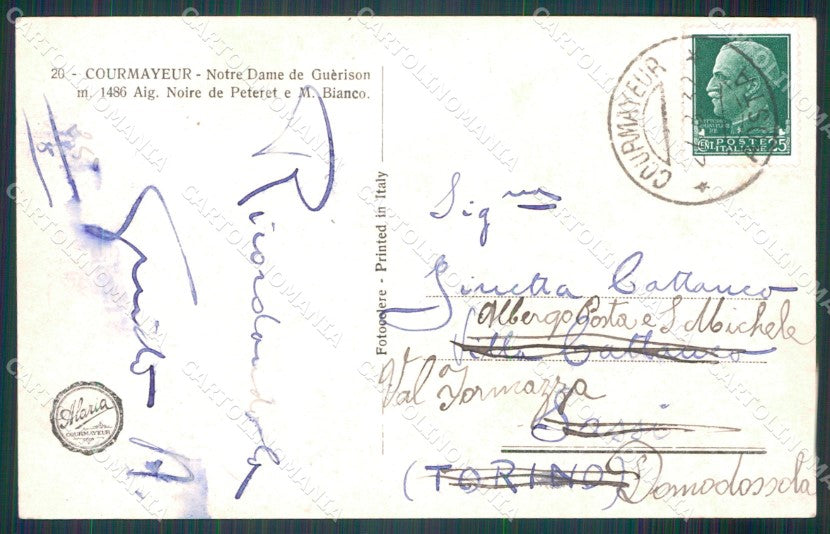 20 - COURMAYEUR - Notre Dame de Guèrison
m. 1486 Aig. Noire de Peteret e M. Bianco.
Ricordandola
Guido
Fotocelere - Printed in Italy
Alaria
COURMAYEUR
COURMAYEUR
AOSTA
POSTE
ITALIANE
CENT 25
Sig.na
Ginetta Cattaneo
Albergo Posta e S. Michele
Villa Cattaneo
Val Formazza
Sassi
(TORINO)
Domodossola
CARTOLINOMANIA